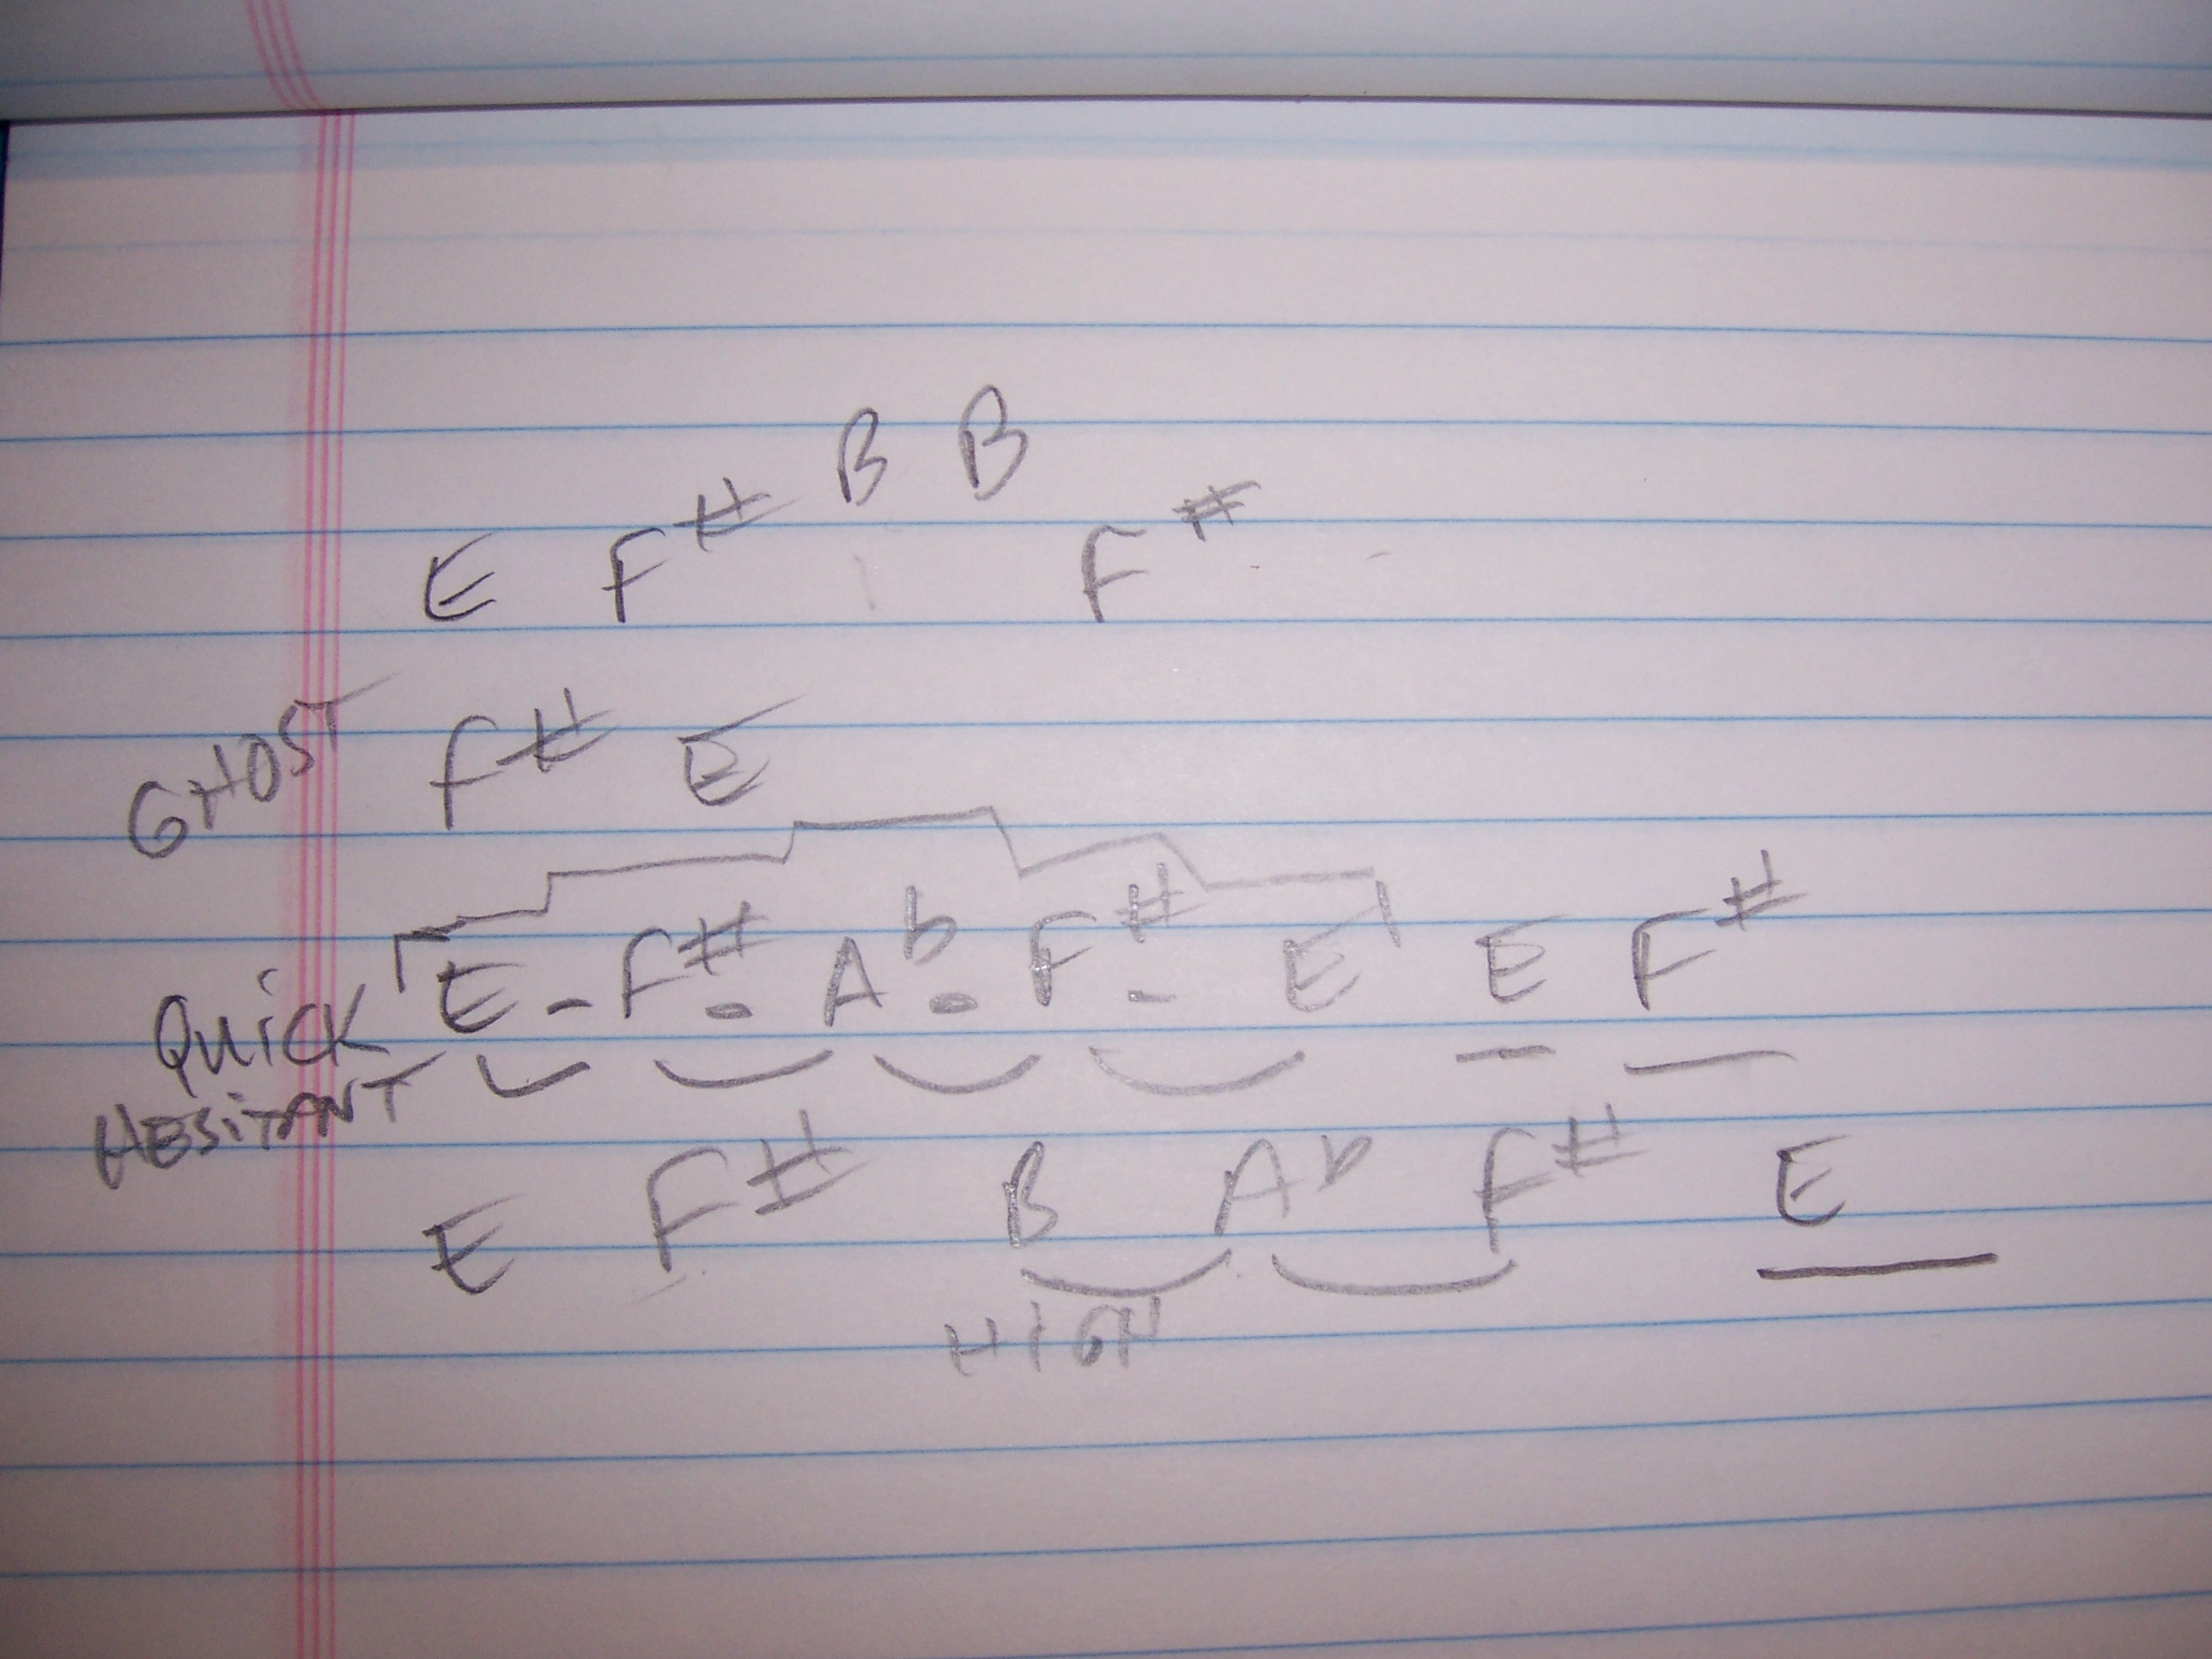 B B
E F# F#
GHOST F# E
QUiCK E - F# - Ab - F# - E E F#
HESiTANT
E F# B Ab F# E
HIGH